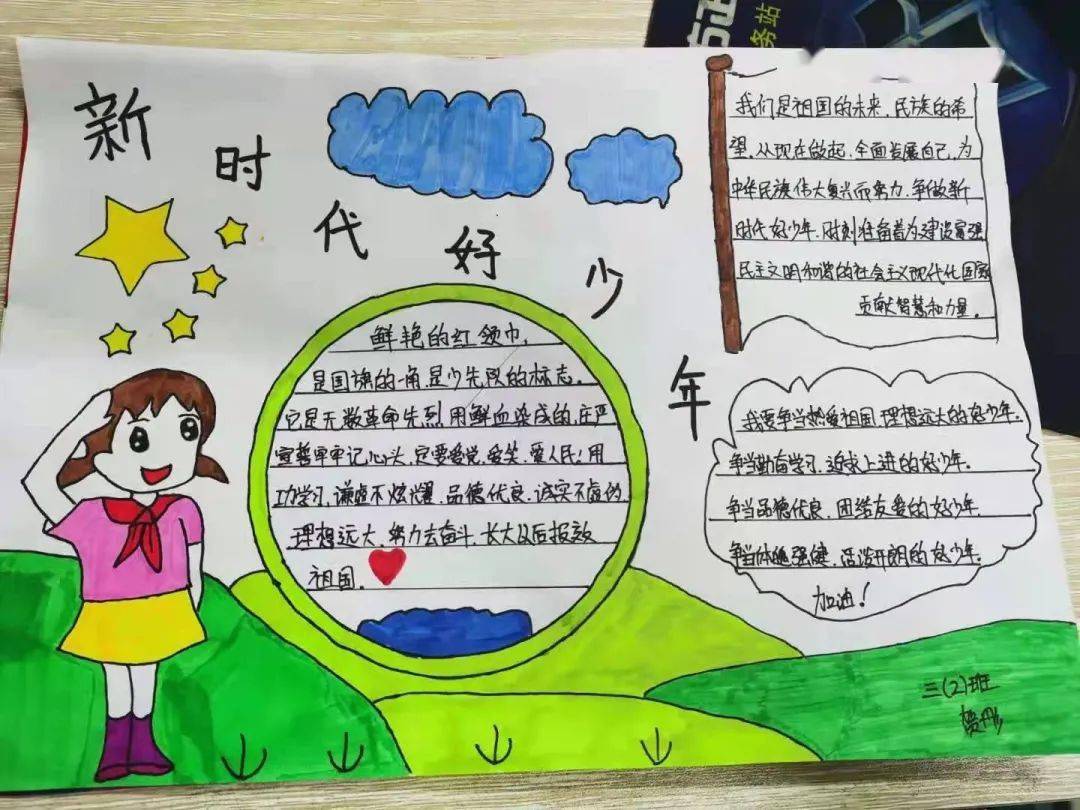 新时代好少年
我们是祖国的未来,民族的希
望,从现在做起,全面发展自己,为
中华民族伟大复兴而努力,争做新
时代好少年,时刻准备着为建设富强
民主文明和谐的社会主义现代化国家
贡献智慧和力量。
鲜艳的红领巾,
是国旗的一角,是少先队的标志。
它是无数革命先烈用鲜血染成的,庄严
宣誓牢牢记心头,一定要爱党、爱、爱人民!用
功学习,谦虚不炫耀,品德优良,诚实不虚伪
理想远大,努力去奋斗,长大以后报效
祖国。
我要争当热爱祖国,理想远大的好少年。
争当勤奋学习,追求上进的好少年。
争当品德优良,团结友爱的好少年
争当体魄强健,活泼开朗的好少年。
加油!
三(2)班
务站